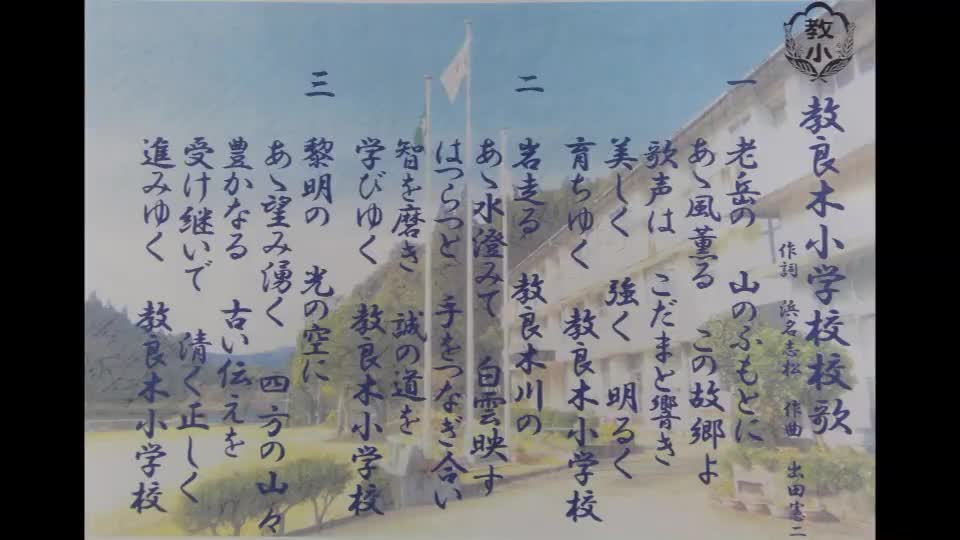 教小
教良木小学校校歌
作詞 浜名志松 作曲 出田憲二
一
老岳の 山のふもとに
あゝ風薫る この故郷よ
歌声は こだまと響き
美しく 強く 明るく
育ちゆく 教良木小学校
二
岩走る 教良木川の
あゝ水澄みて 白雲映す
はつらつと 手をつなぎ合い
智を磨き 誠の道を
学びゆく 教良木小学校
三
黎明の 光の空に
あゝ望み湧く 四方の山々
豊かなる 古い伝えを
受け継いで 清く正しく
進みゆく 教良木小学校